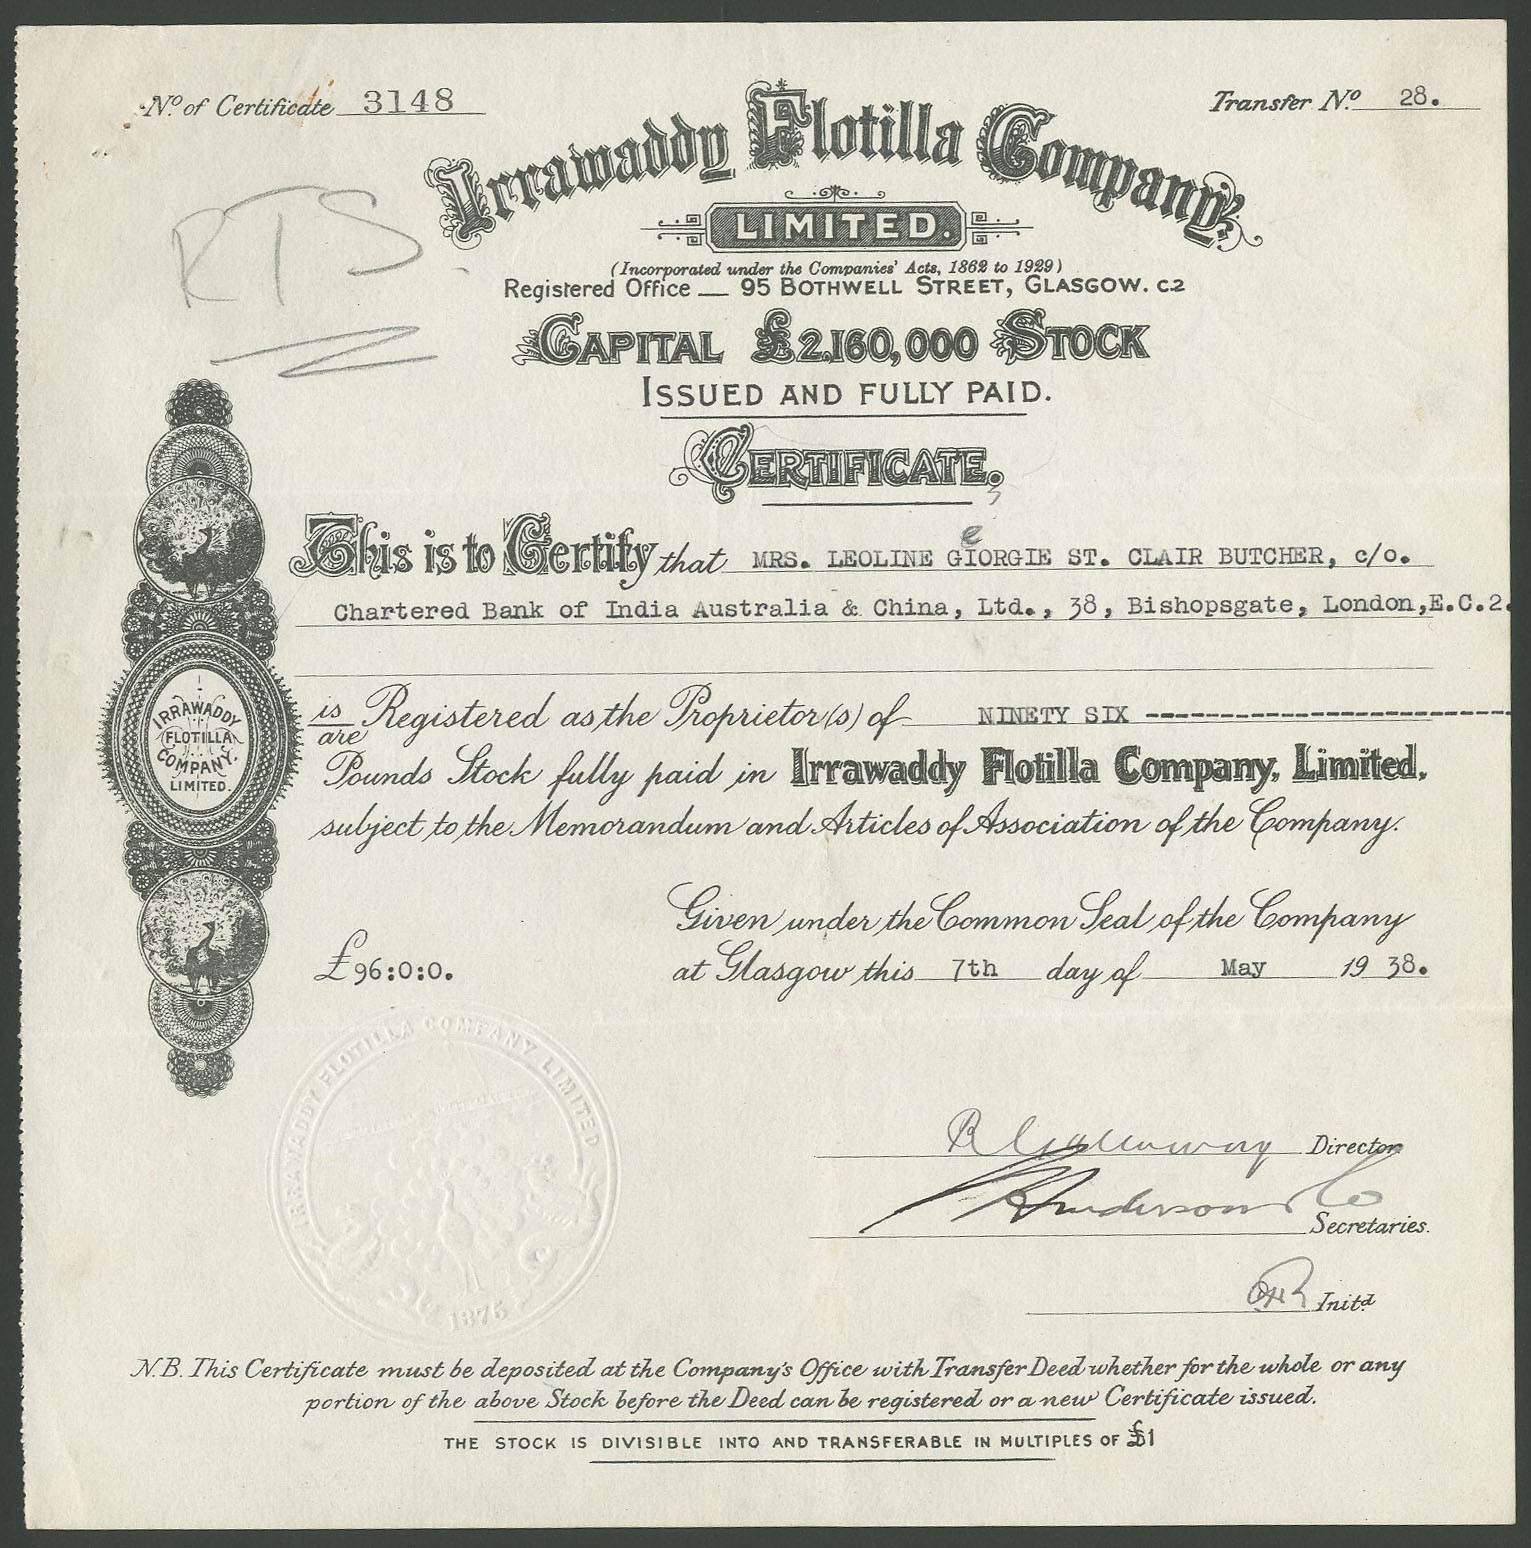 No. of Certificate 3148
Transfer No. 28.
RTS.
Irrawaddy Flotilla Company,
LIMITED.
(Incorporated under the Companies' Acts, 1862 to 1929)
Registered Office — 95 BOTHWELL STREET, GLASGOW. C.2
CAPITAL £2,160,000 STOCK
ISSUED AND FULLY PAID.
CERTIFICATE.
e
This is to Certify that MRS. LEOLINE GIORGIE ST. CLAIR BUTCHER, c/o.
Chartered Bank of India Australia & China, Ltd., 38, Bishopsgate, London, E.C.2.
is
are Registered as the Proprietor(s) of NINETY SIX ------------------------
Pounds Stock fully paid in Irrawaddy Flotilla Company, Limited,
subject to the Memorandum and Articles of Association of the Company.
IRRAWADDY
FLOTILLA
COMPANY,
LIMITED.
Given under the Common Seal of the Company
£96:0:0.
at Glasgow this 7th day of May 1938.
IRRAWADDY FLOTILLA COMPANY LIMITED
1875
R Galloway Director
P Henderson & Co
Secretaries.
Initd
N.B. This Certificate must be deposited at the Company's Office with Transfer Deed whether for the whole or any
portion of the above Stock before the Deed can be registered or a new Certificate issued.
THE STOCK IS DIVISIBLE INTO AND TRANSFERABLE IN MULTIPLES OF £1